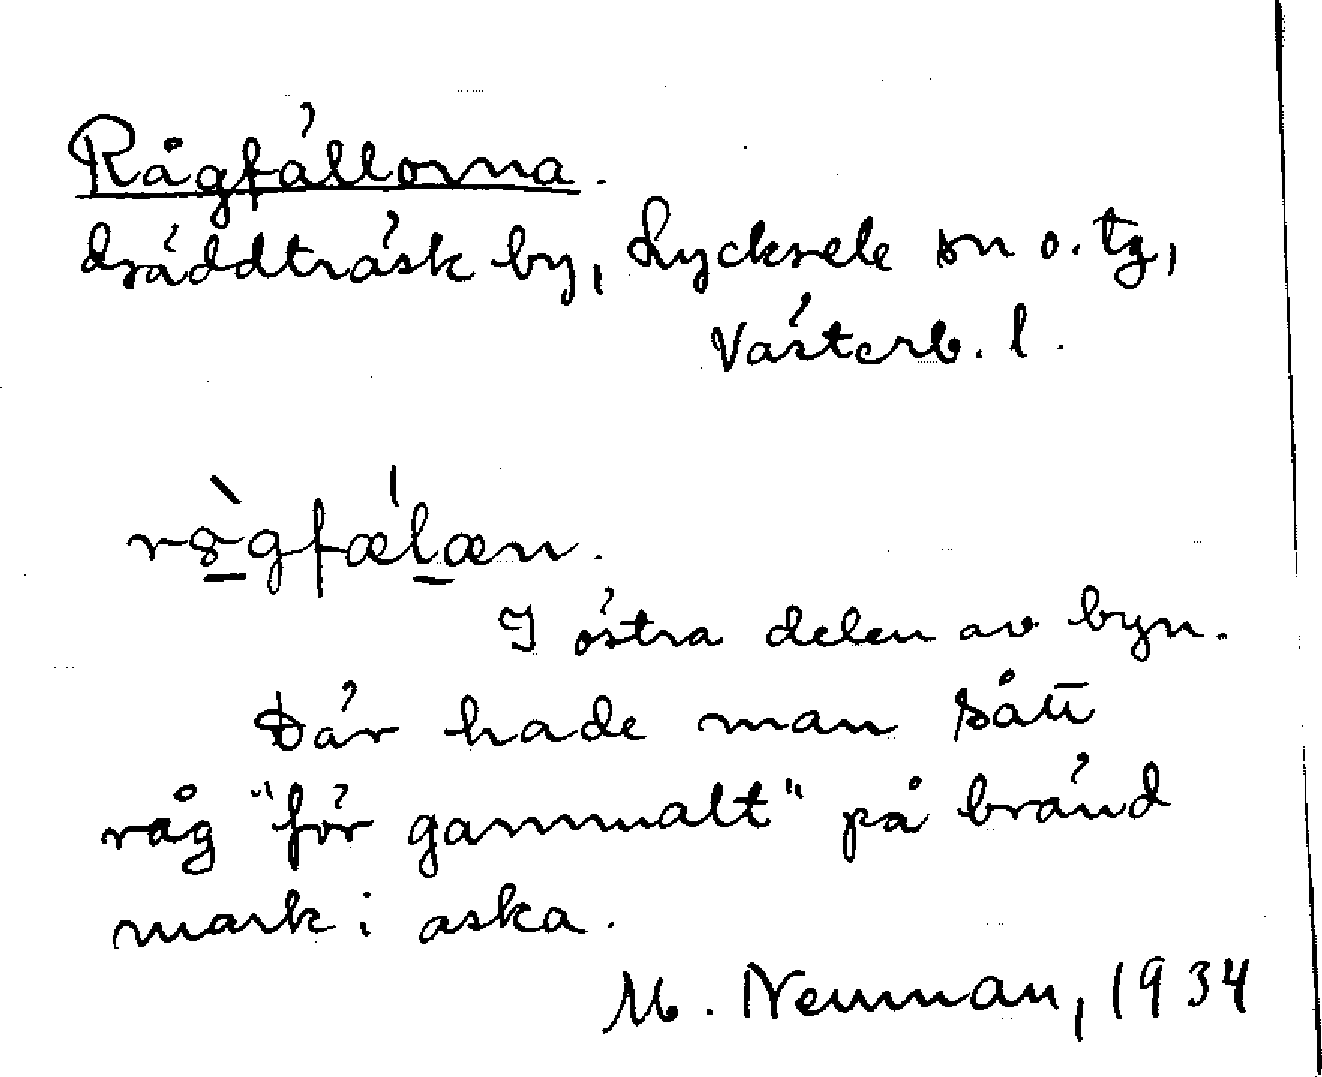 Rågfällorna.
dräddträsk by, Lycksele sn o. tg,
Västerb. l.
I östra delen av byn.
Där hade man sått
råg "för gammalt" på bränd
mark i aska.
M. Neuman, 1934